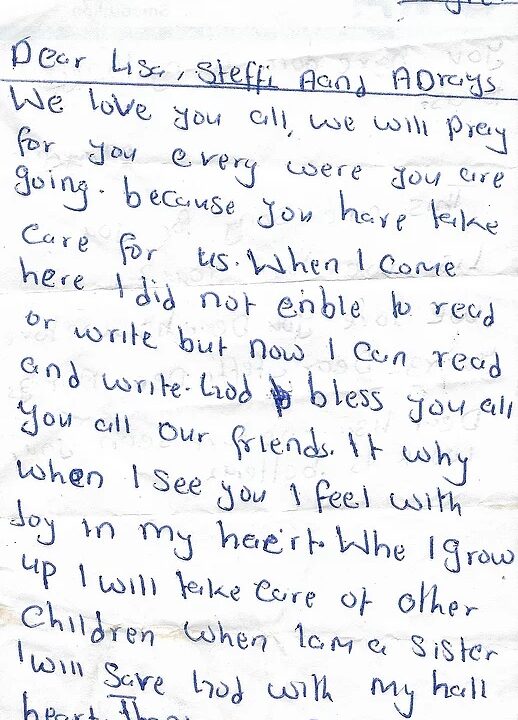 Dear Lisa, Steffi Aand ADrays
We love you all, we will pray
for you every were you are
going. because you have take
care for us. When I come
here I did not enible to read
or write but now I can read
and write. God b bless you all
you all our friends. It why
when I see you I feel with
Joy in my heart. Whe I grow
up I will take care of other
Children when Iam a sister
I will Save God with my hall
heart.